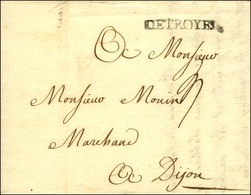 DETROYES
A Monsieur
Monsieur Monin
Marchand
A Dijon